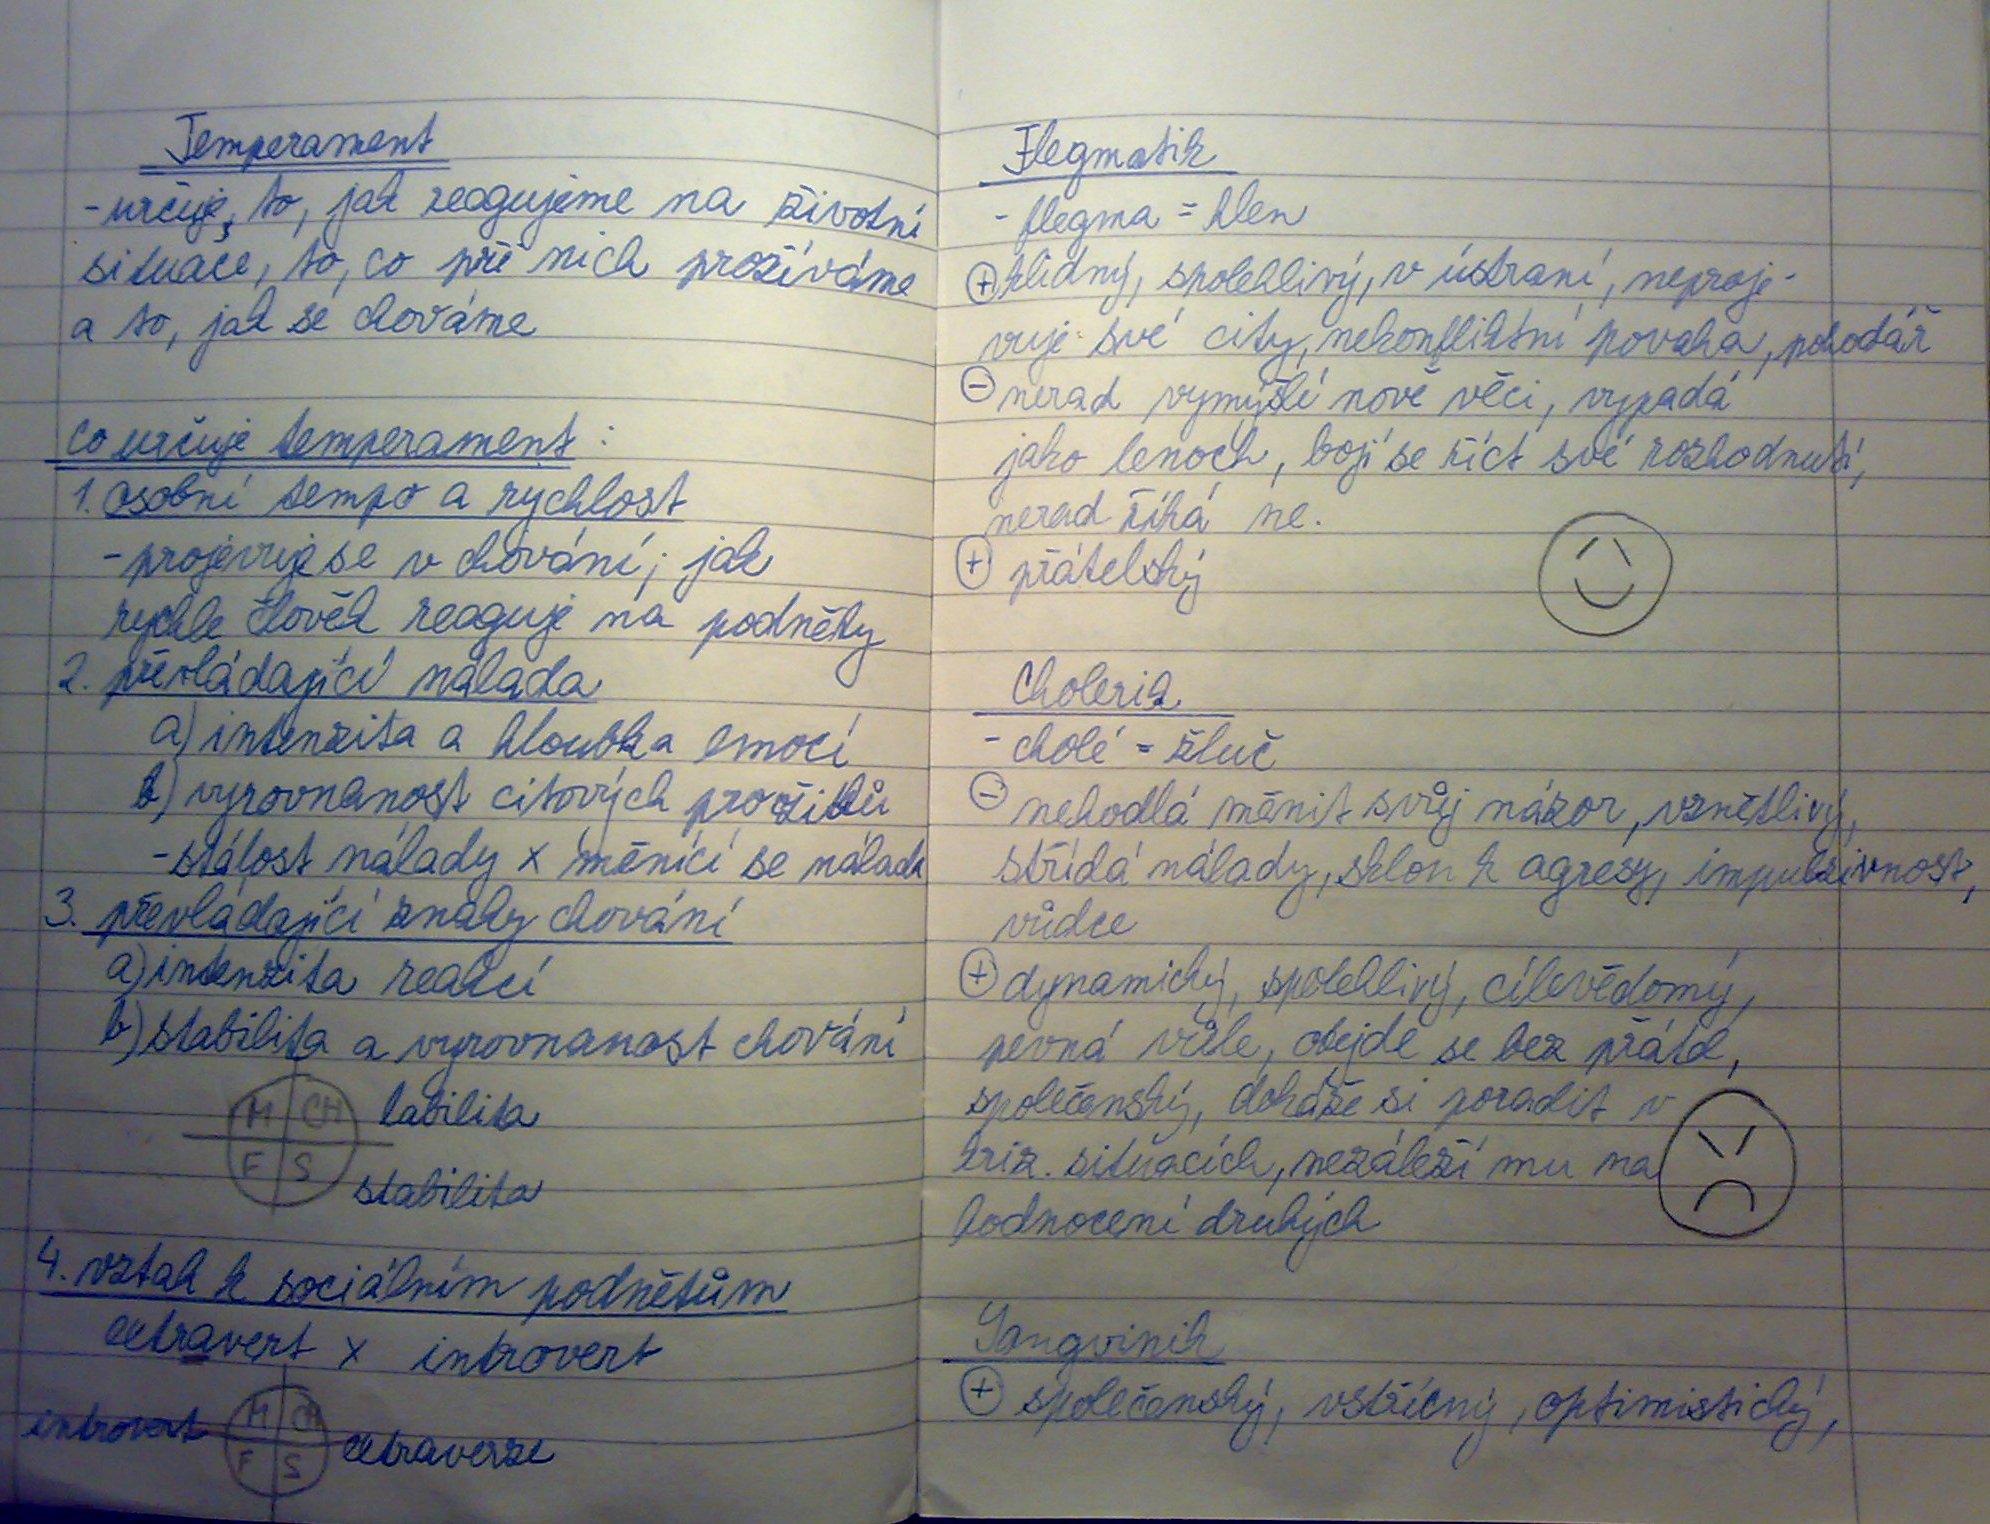 Temperament
- určuje, to, jak reagujeme na životní
situace, to, co při nich prožíváme
a to, jak se chováme
Co určuje temperament:
1. osobní tempo a rychlost
- projevuje se v chování; jak
rychle člověk reaguje na podněty
2. převládající nálada
a) intenzita a hloubka emocí
b) vyrovnanost citových prožitků
- stálost nálady x měnící se nálada
3. převládající znaky chování
a) intenzita reakcí
b) stabilita a vyrovnanost chování
M CH labilita
F S
stabilita
4. vztah k sociálním podnětům
extravert x introvert
M CH
introvert
F S extraverze
Flegmatik
- flegma = hlen
+ klidný, spolehlivý, v ústraní, neproje-
vuje své city, nekonfliktní povaha, pohodář
- nerad vymýšlí nové věci, vypadá
jako lenoch, bojí se říct své rozhodnutí,
nerad říká ne.
+ přátelský
Cholerik
- cholé = žluč
- nehodlá měnit svůj názor, vznětlivý,
střídá nálady, sklon k agresy, impulzivnost,
vůdce
+ dynamický, spolehlivý, cílevědomý,
pevná vůle, obejde se bez přátel,
společenský, dokáže si poradit v
kriz. situacích, nezáleží mu na
hodnocení druhých
Sangvinik
+ společenský, vstřícný, optimistický,